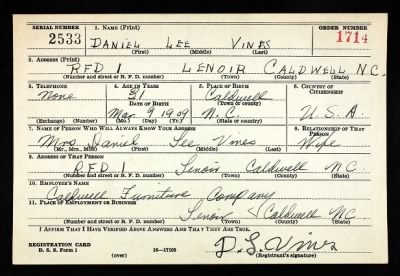 SERIAL NUMBER 1. NAME (Print) ORDER NUMBER
2533 DANIEL LEE VINES 1714
(First) (Middle) (Last)
2. ADDRESS (Print)
RFD 1 LENOIR CALDWELL N.C.
(Number and street or R. F. D. number) (Town) (County) (State)
3. TELEPHONE 4. AGE IN YEARS 5. PLACE OF BIRTH 6. COUNTRY OF CITIZENSHIP
None 31 Caldwell
DATE OF BIRTH (Town or county)
Mar. 9 1909 N.C. U.S.A.
(Exchange) (Number) (Mo.) (Day) (Yr.) (State or country)
7. NAME OF PERSON WHO WILL ALWAYS KNOW YOUR ADDRESS 8. RELATIONSHIP OF THAT PERSON
Mrs. Daniel Lee Vines Wife
(Mr., Mrs., Miss) (First) (Middle) (Last)
9. ADDRESS OF THAT PERSON
RFD 1 Lenoir Caldwell NC
(Number and street or R. F. D. number) (Town) (County) (State)
10. EMPLOYER'S NAME
Caldwell Furniture Company
11. PLACE OF EMPLOYMENT OR BUSINESS
Lenoir Caldwell NC
(Number and street or R. F. D. number) (Town) (County) (State)
I AFFIRM THAT I HAVE VERIFIED ABOVE ANSWERS AND THAT THEY ARE TRUE.
REGISTRATION CARD
D. S. S. Form 1 16—17105 D. L. Vines
(over) (Registrant's signature)